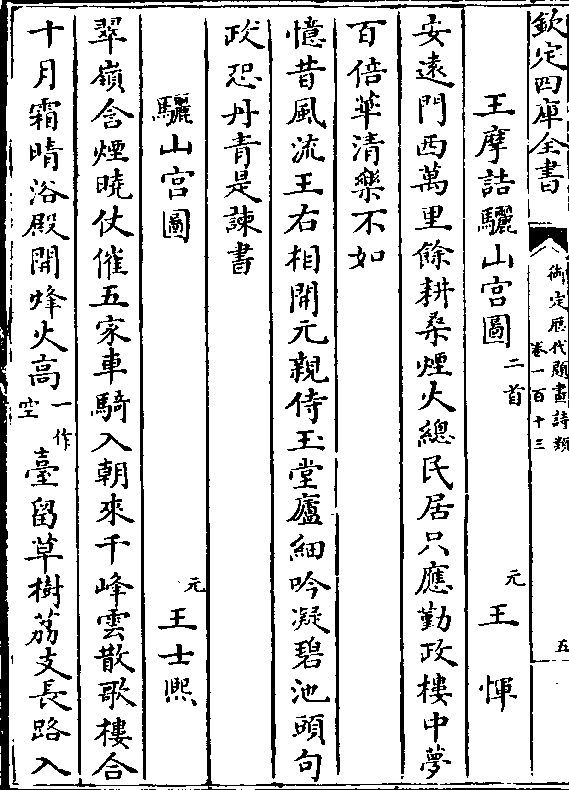 欽定四庫全書
御定歷代題畫詩類
卷一百十三
五
王摩詰驪山宮圖二首 元 王惲
安遠門西萬里餘耕桑煙火總民居只應勤政樓中夢
百倍華清樂不如
憶昔風流王右相開元親侍玉堂廬細吟凝碧池頭句
政恐丹青是諫書
驪山宮圖 元 王士熙
翠嶺含煙曉仗催五家車騎入朝來千峰雲散歌樓合
十月霜晴浴殿開烽火高一作空臺留草樹荔支長路入